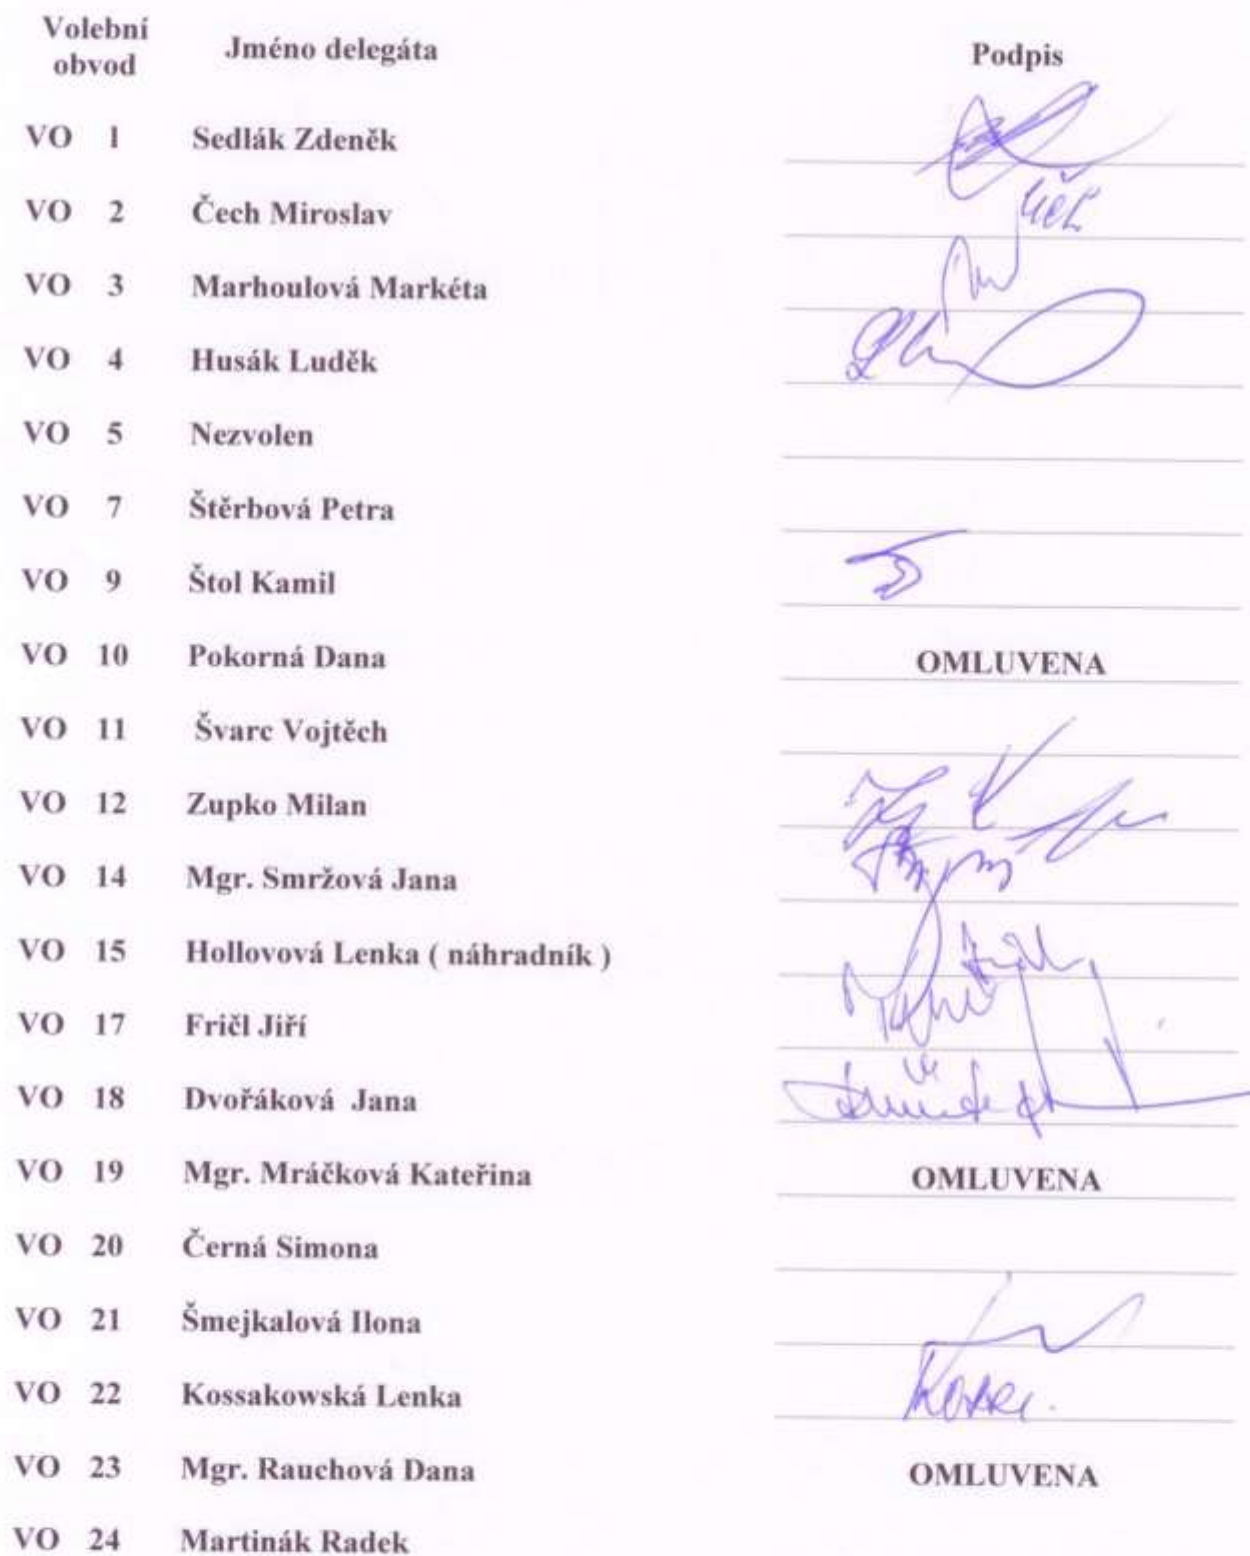 Volební obvod Jméno delegáta Podpis
VO 1 Sedlák Zdeněk
VO 2 Čech Miroslav
VO 3 Marhoulová Markéta
VO 4 Husák Luděk
VO 5 Nezvolen
VO 7 Štěrbová Petra
VO 9 Štol Kamil
VO 10 Pokorná Dana OMLUVENA
VO 11 Švarc Vojtěch
VO 12 Zupko Milan
VO 14 Mgr. Smržová Jana
VO 15 Hollovová Lenka ( náhradník )
VO 17 Fričl Jiří
VO 18 Dvořáková Jana
VO 19 Mgr. Mráčková Kateřina OMLUVENA
VO 20 Černá Simona
VO 21 Šmejkalová Ilona
VO 22 Kossakowská Lenka
VO 23 Mgr. Rauchová Dana OMLUVENA
VO 24 Martinák Radek